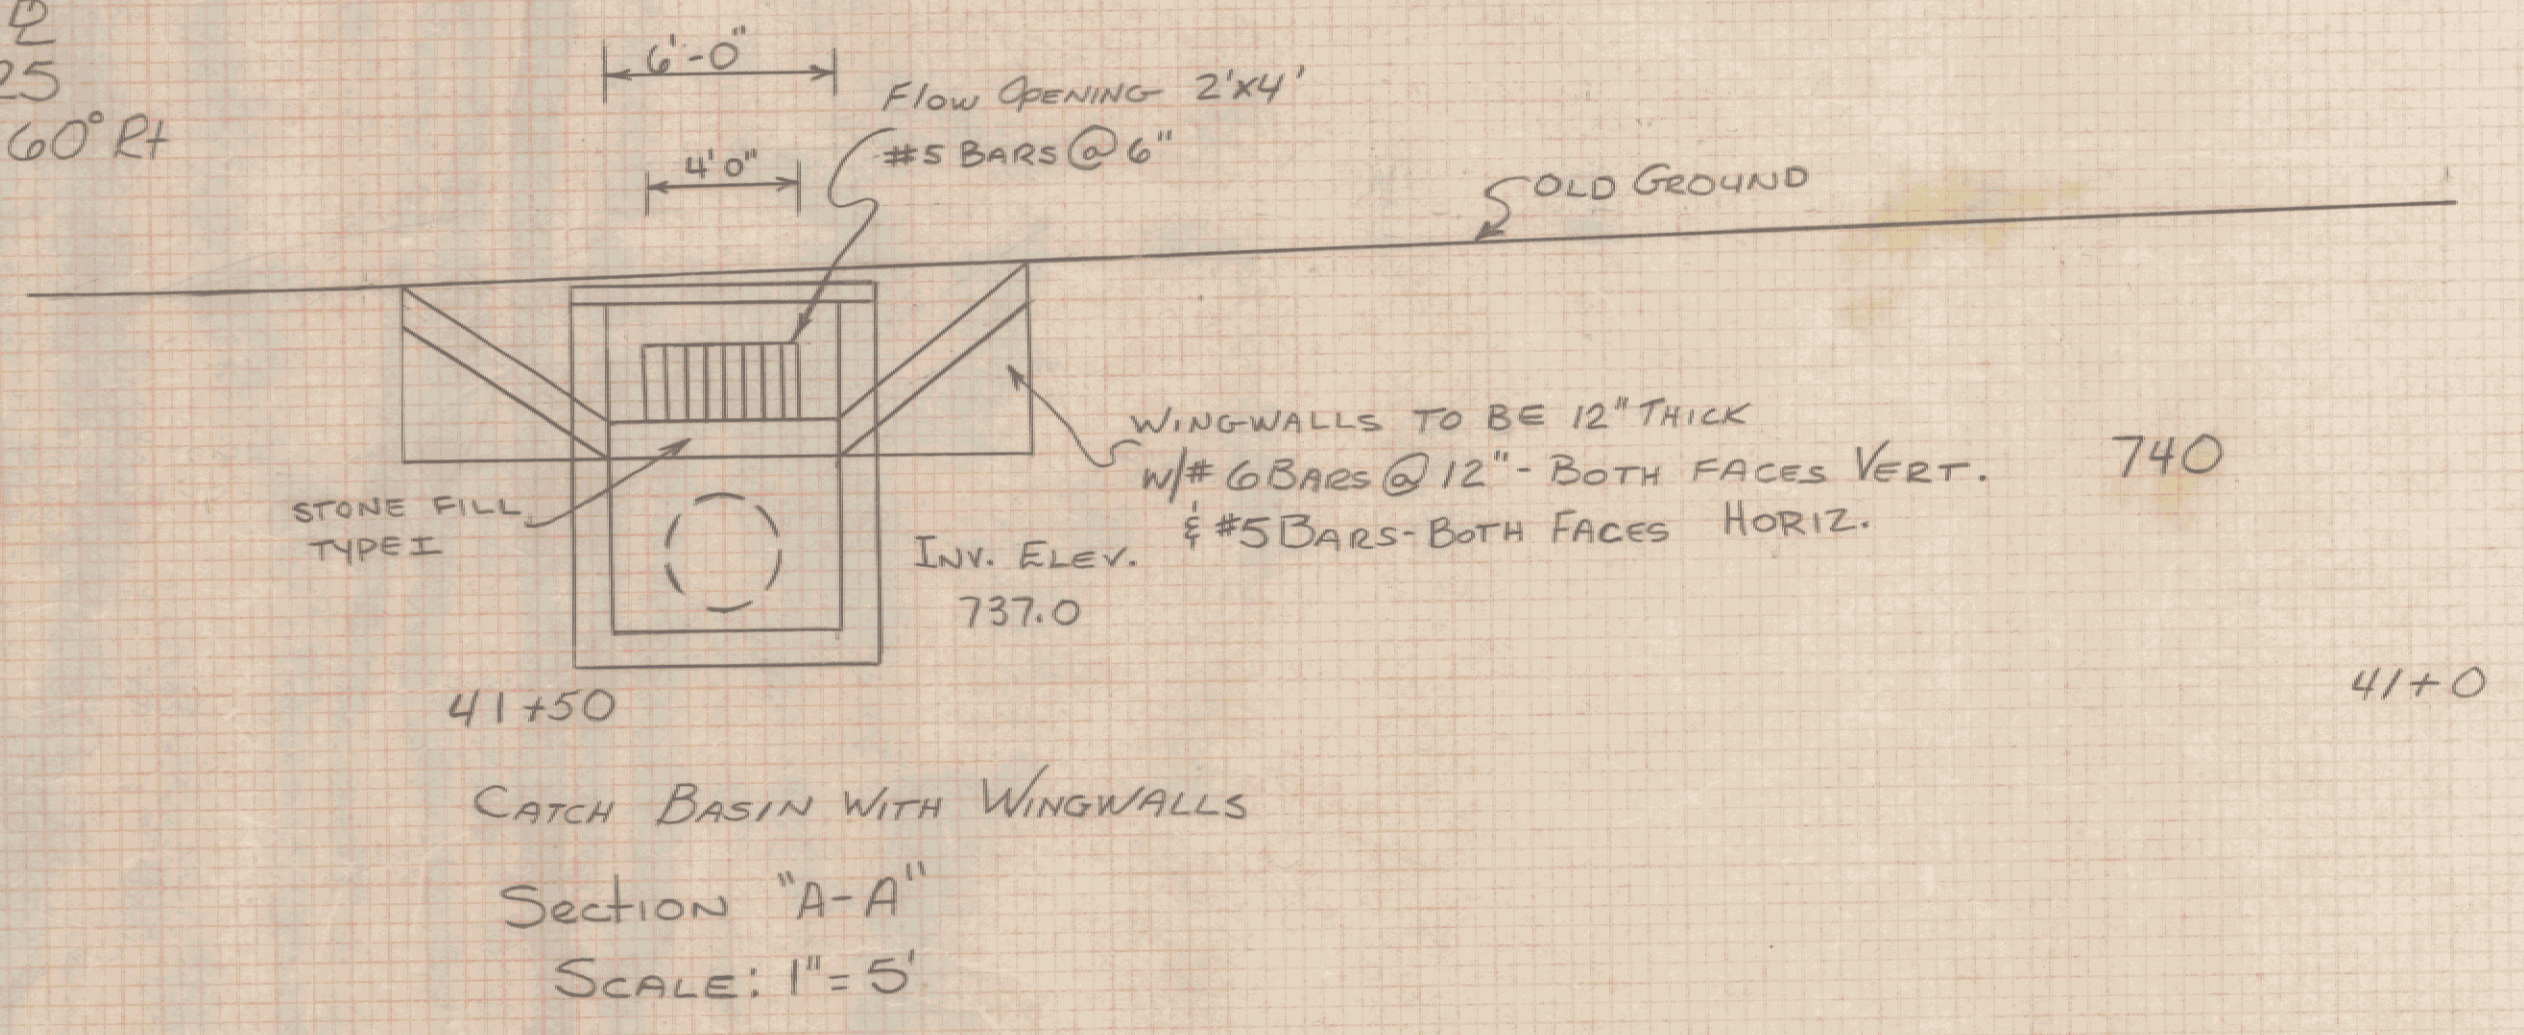 25
60° Rt
6'-0"
Flow Opening 2'x4'
#5 Bars @ 6"
4'0"
Old Ground
Wingwalls to be 12" Thick
w/# 6 Bars @ 12" - Both Faces Vert.
& #5 Bars - Both Faces Horiz.
740
Stone Fill
Type I
Inv. Elev.
737.0
41+50
41+0
Catch Basin With Wingwalls
Section "A-A"
Scale: 1" = 5'